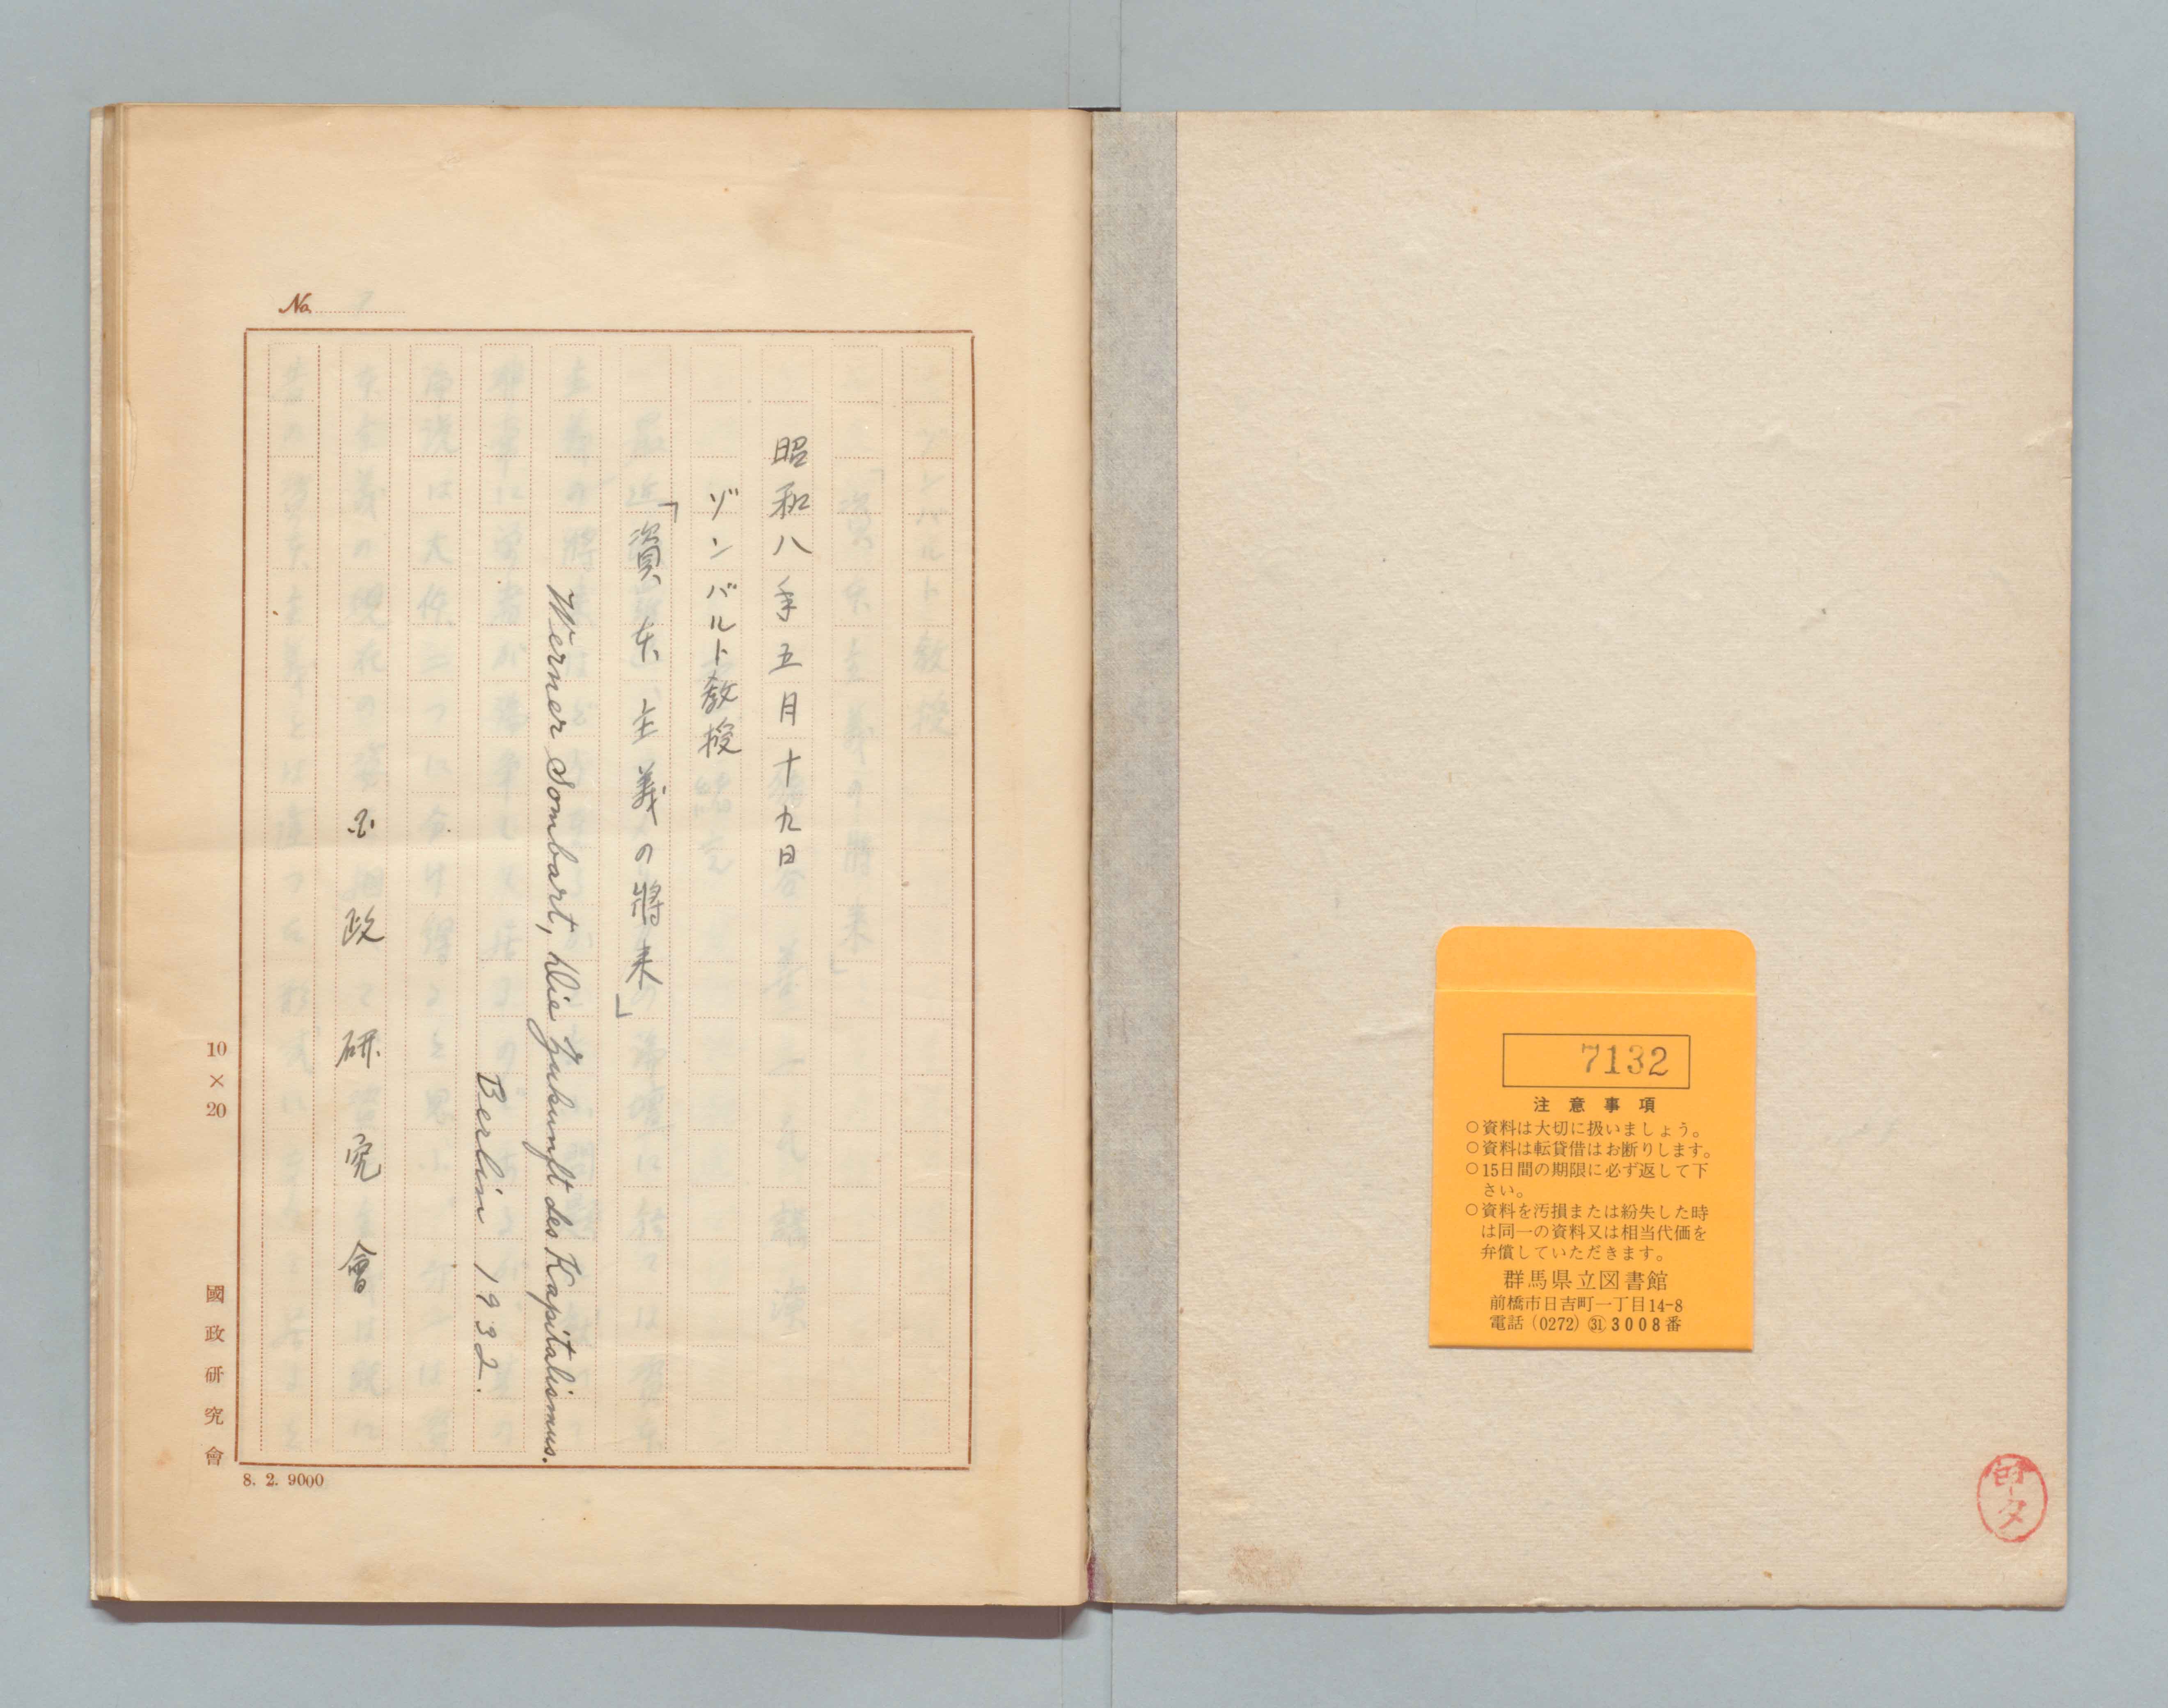 7132
注意事項
○資料は大切に扱いましょう。
○資料は転貸借はお断りします。
○15日間の期限に必ず返して下
さい。
○資料を汚損または紛失した時
は同一の資料又は相当代価を
弁償していただきます。
群馬県立図書館
前橋市日吉町一丁目14-8
電話(0272)㉛3008番
No.
昭和八年五月十九日
ゾンバルト教授
「資本主義の將来」
Werner Sombart, Die Zukunft des Kapitalismus.
Berlin 1932.
政研究會
10×20
國政研究會
8. 2. 9000